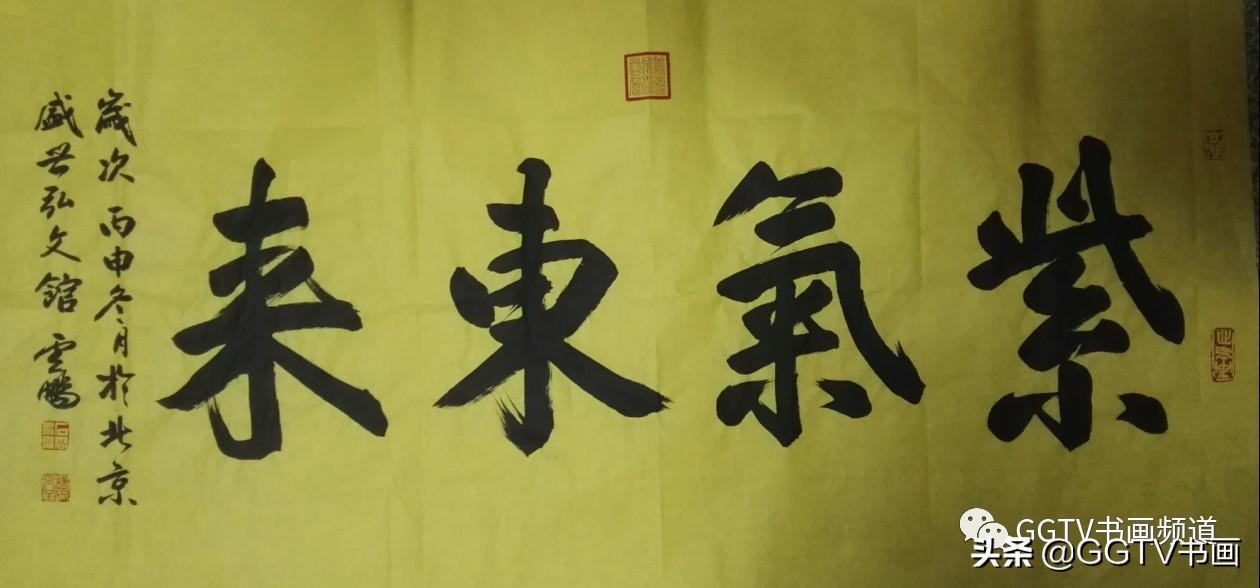 紫氣東来
歲次丙申冬月於北京
盛世弘文館雲鵬
GGTV书画频道
头条 @GGTV书画